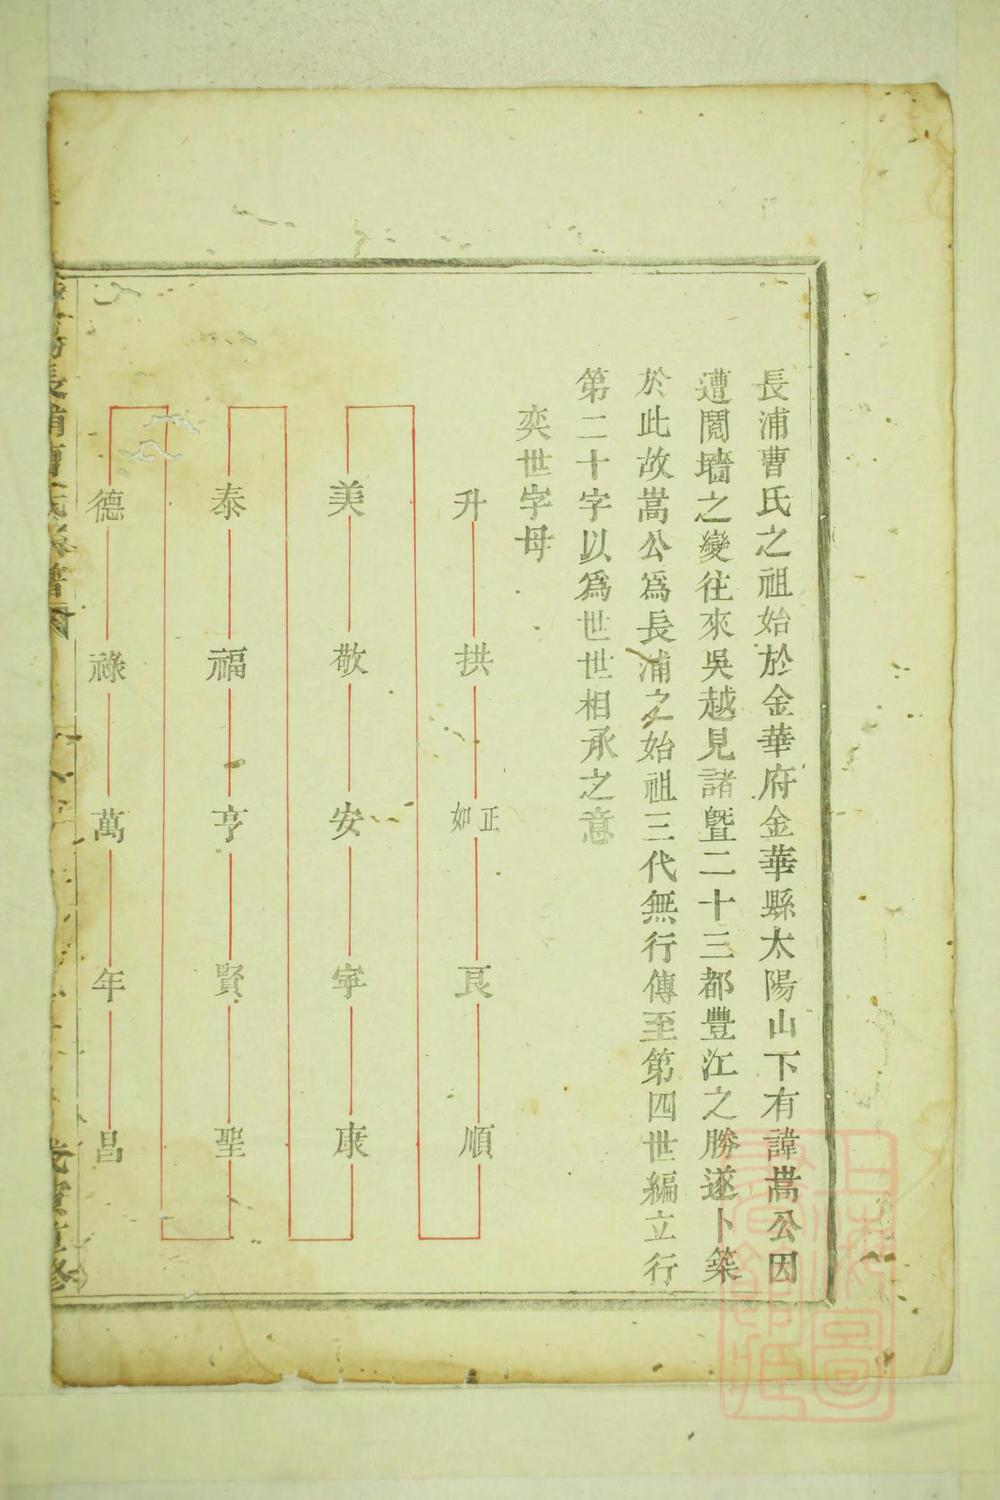 長浦曹氏之祖始於金華府金華縣太陽山下有諱嵩公因
遭鬩墻之變往來吳越見諸暨二十三都豐江之勝遂卜築
於此故嵩公爲長浦之始祖三代無行傳至第四世編立行
第二十字以爲世世相承之意
奕世字母
升 拱 正如 艮 順
美 敬 安 寜 康
泰 福 亨 賢 聖
德 祿 萬 年 昌